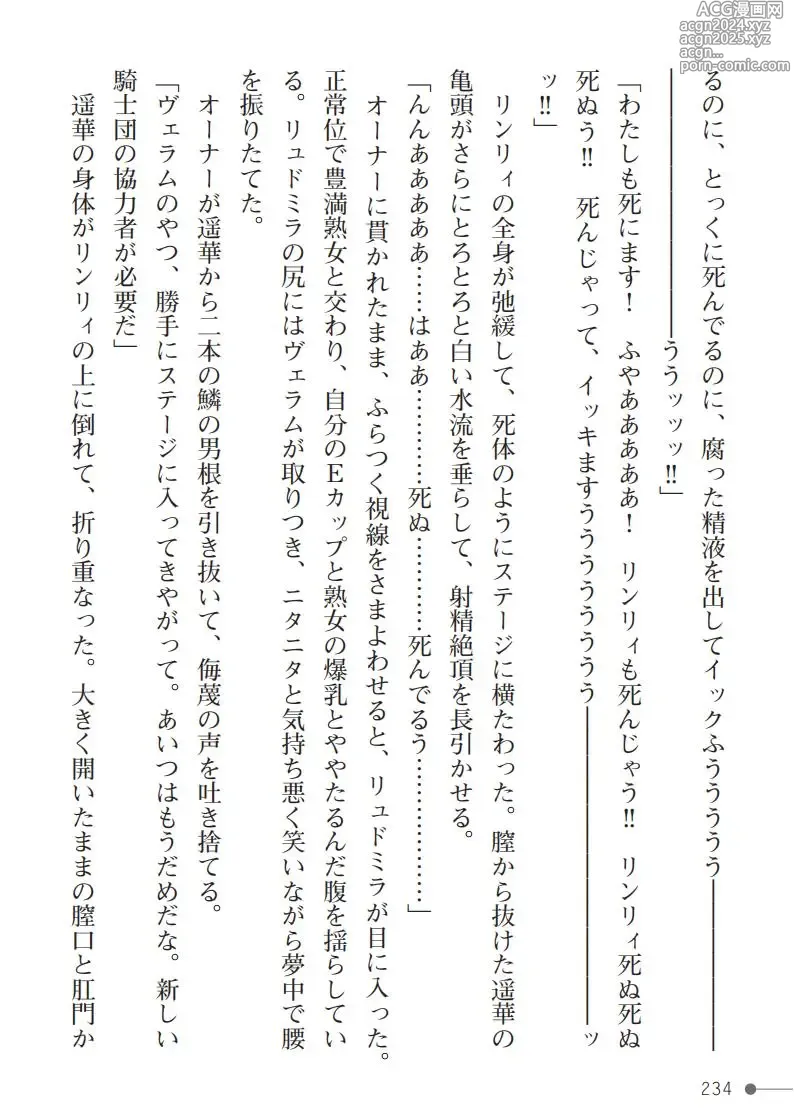 ACG漫画网
acgn2024.xyz
acgn2025.xyz
acgn...
porn-comic.com
るのに、とっくに死んでるのに、腐った精液を出してイックふうううううう――――――
――――――――――ううッッッ!!」
「わたしも死にます!　ふやあああああ!　リンリィも死んじゃう!!　リンリィ死ぬ死ぬ
死ぬう!!　死んじゃって、イッキますううううううううう――――――――――――ッ
ッ!!」
　リンリィの全身が弛緩して、死体のようにステージに横たわった。膣から抜けた遥華の
亀頭がさらにとろとろと白い水流を垂らして、射精絶頂を長引かせる。
「んんああああああ……はああ…………死ぬ…………死んでるう………………」
　オーナーに貫かれたまま、ふらつく視線をさまよわせると、リュドミラが目に入った。
正常位で豊満熟女と交わり、自分のEカップと熟女の爆乳とややたるんだ腹を揺らしてい
る。リュドミラの尻にはヴェラムが取りつき、ニタニタと気持ち悪く笑いながら夢中で腰
を振りたてた。
　オーナーが遥華から二本の鱗の男根を引き抜いて、侮蔑の声を吐き捨てる。
「ヴェラムのやつ、勝手にステージに入ってきやがって。あいつはもうだめだな。新しい
騎士団の協力者が必要だ」
　遥華の身体がリンリィの上に倒れて、折り重なった。大きく開いたままの膣口と肛門か
234